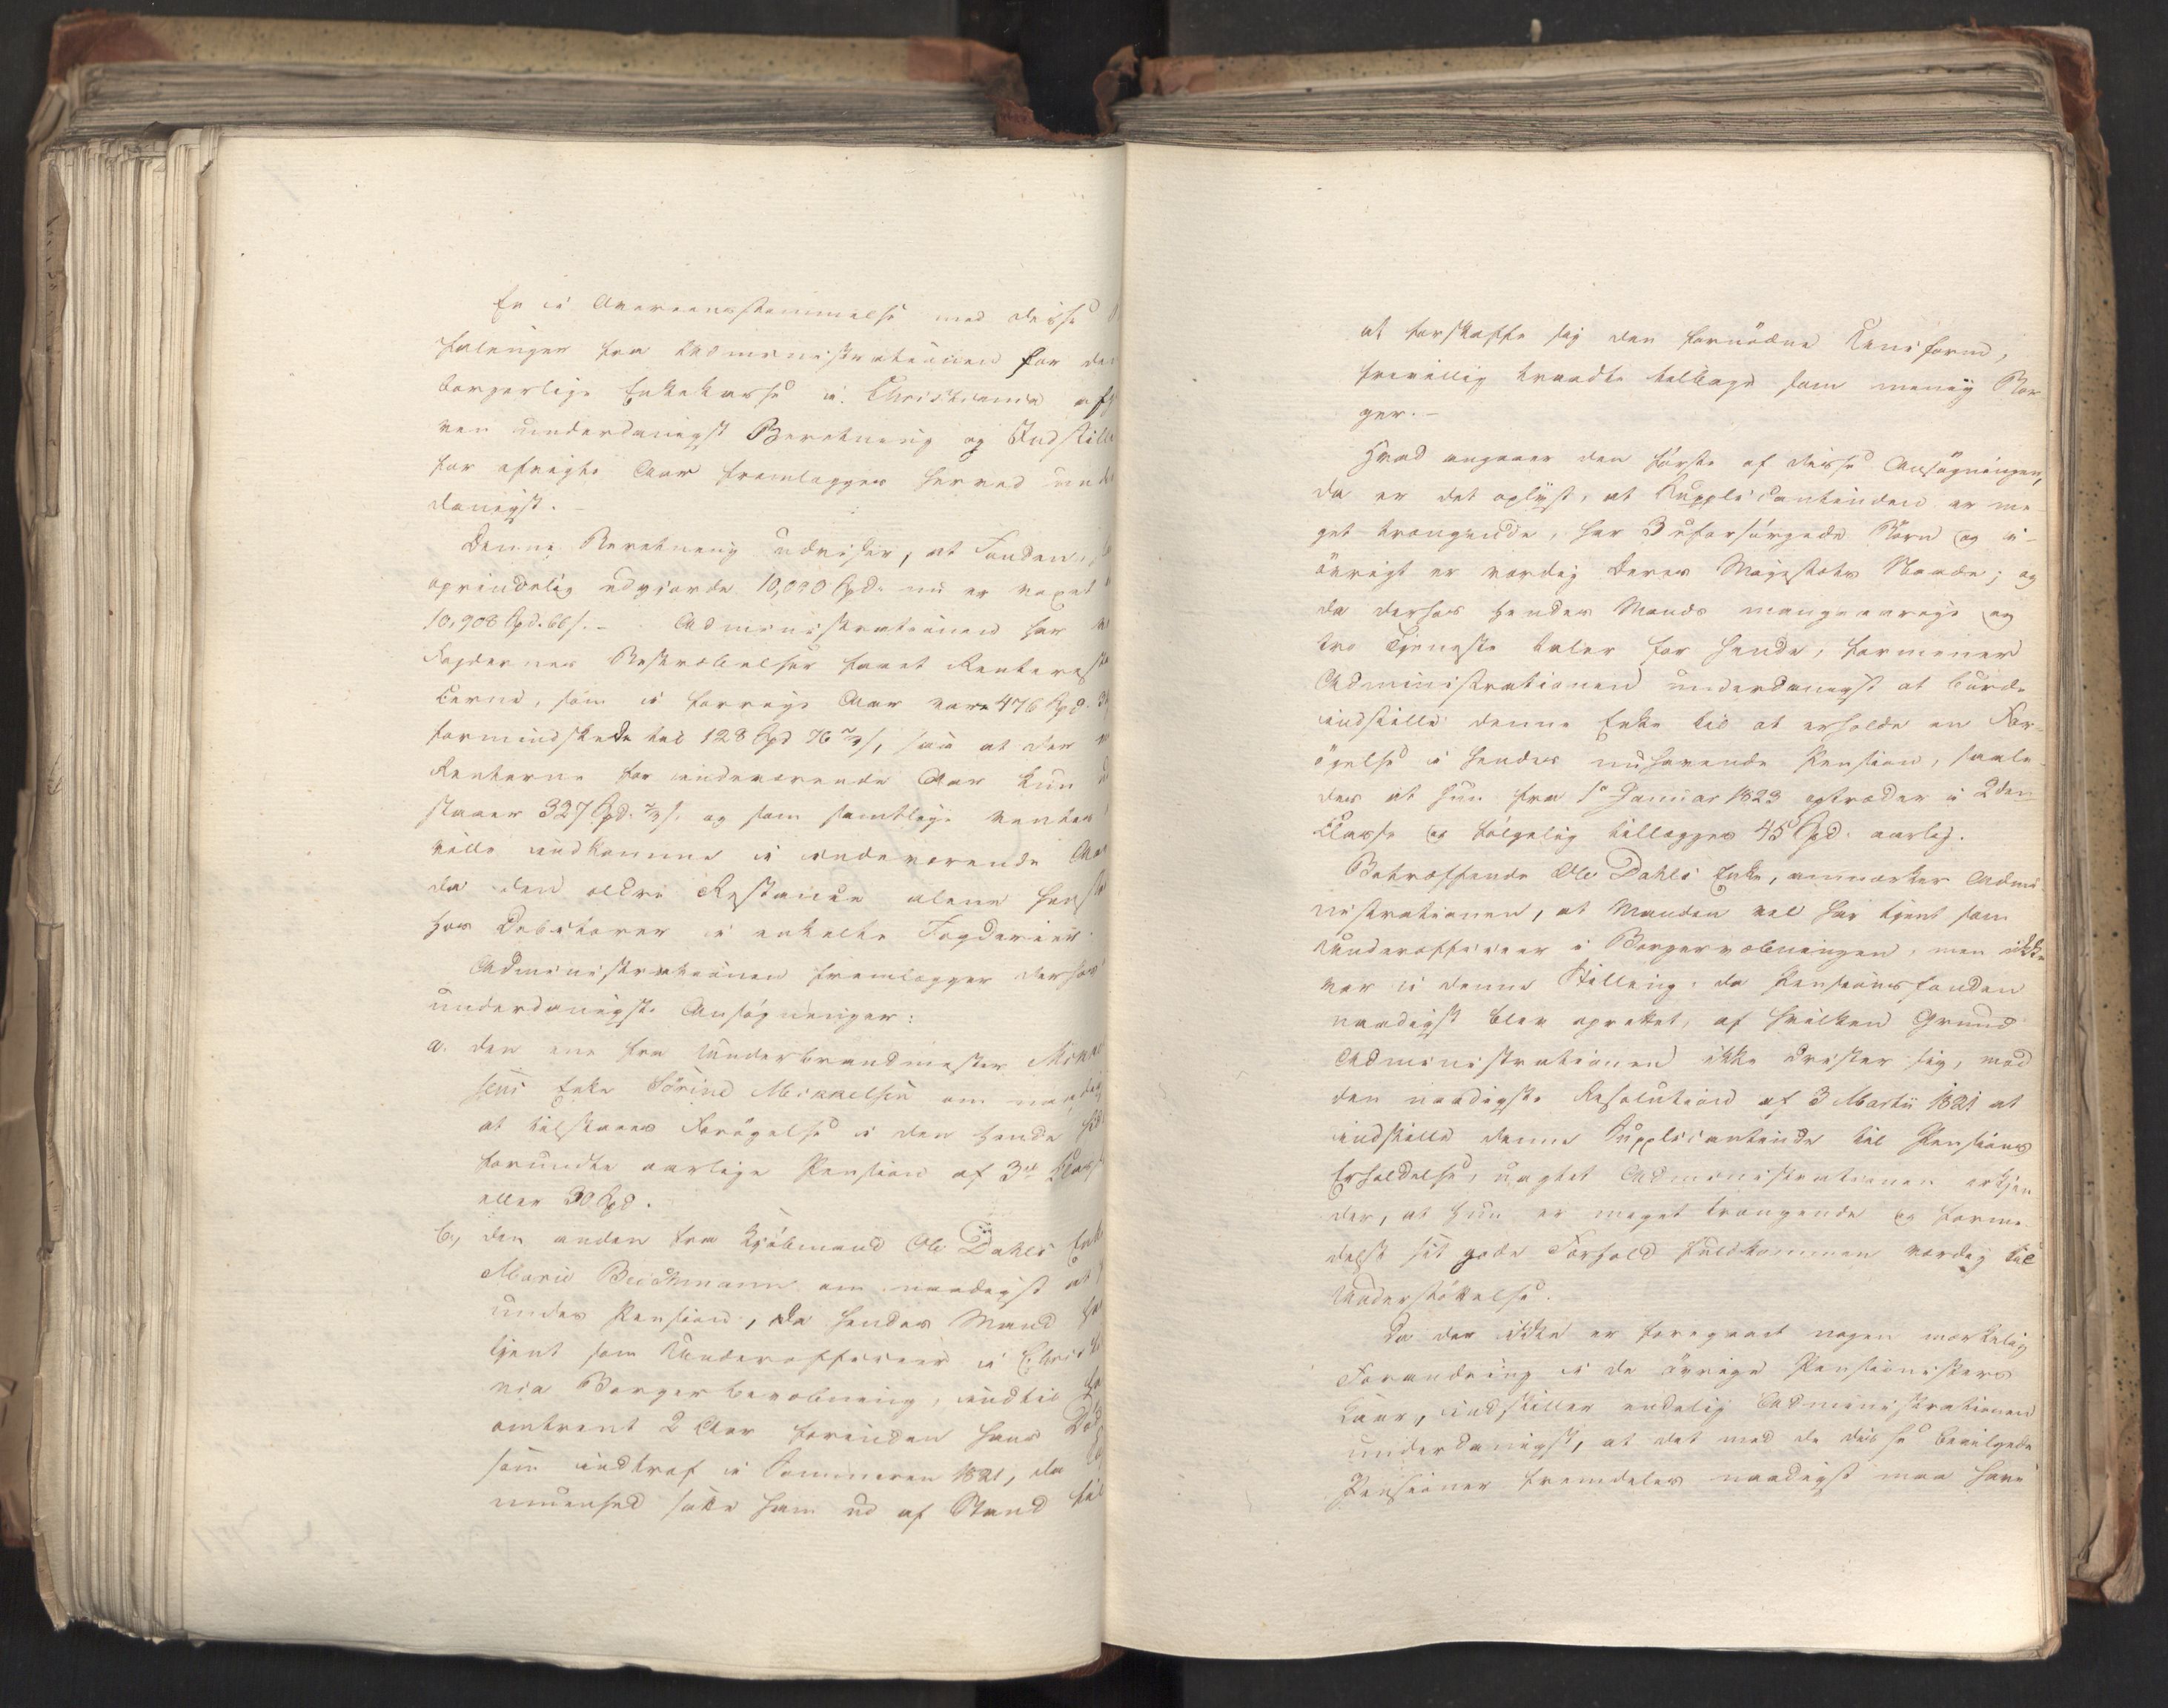 En i Overeensstemmelse med disse
falinger fra Administrationen for den
borgerlige Enkekasse i Christiania afgi
ven underdanigst Beretning og Indstill
for afvigte Aar fremlægges herved unde
danigst. -
Denne Beretning udviser, at Fonden,
oprindelig udgjorde 10,000 Spd. nu er voxet
10,908 Spd. 66 s. - Administrationen har
Fogdernes Bestræbelser faaet Renterest
cerne, som i forrige Aar vare 476 Spd.
formindskede til 128 Spd 76 s, saa at der
Renterne for indeværende Aar kun
staaer 327 Spd. s. og som samtlige ventes
ville indkomme i indeværende Aar
da den ældre Restance alene
hos Debitorer i enkelte Fogderier.
Administrationen fremlægger derhos
underdanigste Ansøgninger:
a. den ene fra Underbrandmester Mikkel
sens Enke Sørine Mickelsen om naadig
at tilstaaes Forøgelse i den hende
forundte aarlige Pension af 3die Classe
eller 30 Spd.
b, den anden fra Kjøbmand Ole Dahls Enke
Marie Beichmann om naadigst at
undes Pension, da hendes Mand har
tjent som Underofficeer i Christi
nia Borgerbevæbning, indtil
omtrent 2 Aar forinden hans Død
som indtraf i Sommeren 1821, da
uenhed satte ham ud af Stand til
at forskaffe sig den fornødne Uniform,
frivillig traadte tilbage som menig Bor
ger. -
Hvad angaaer den første af disse Ansøgninger,
da er det oplyst, at Supplicantinden er me
get trængende, har 3 uforsørgede Børn og i-
øvrigt er værdig Deres Majestæts Naade; og
da derhos hendes Mands mangeaarige og
tro Tjeneste taler for hende, formener
Administrationen underdanigst at burde
indstille denne Enke til at erholde en For-
øgelse i hendes nuhavende Pension, saale-
des at hun fra 1ste Januar 1823 optræder i 2den
Classe og følgelig tillægges 45 Spd. aarlig.
Betræffende Ole Dahls Enke, anmærker Admi-
nistrationen, at Manden vel har tjent som
Underofficeer i Borgervæbningen, men ikke
var i denne Stilling, da Pensionsfonden
naadigst blev oprettet, af hvilken Grund
Administrationen ikke drister sig, mod
den naadigste Resolution af 3 Martii 1821 at
indstille denne Supplicantinde til Pensions
Erholdelse, uagtet Administrationen erkjen
der, at hun er meget trængende og forme-
delst sit gode Forhold fuldkommen værdig til
Understøttelse.
Da der ikke er foregaaet nogen mærkelig
Forandring i de øvrige Pensionisters
Kaar, indstiller endelig Administrationen
underdanigst, at det med de disse bevilgede
Pensioner fremdeles naadigst maa have